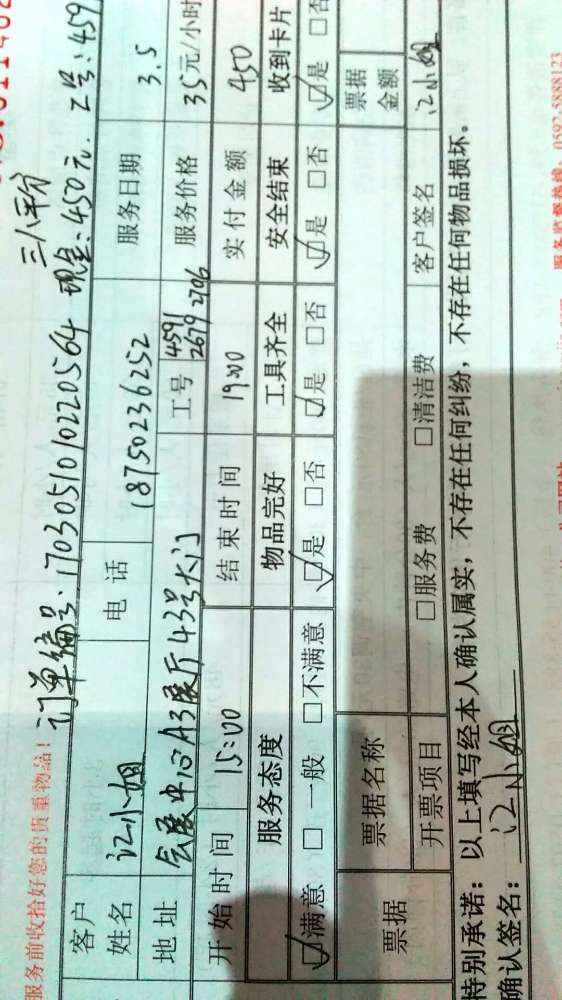 服务前收拾好您的贵重物品！
订单编号：17030510102205​64 现金：450元. 工号：459
客户姓名 江小姐 电话 18750236252 服务日期 3.5
地址 会展中心A3展厅43号大门 工号 4591 2679 2706 服务价格 35元/小时
开始时间 15:00 结束时间 19:00 实付金额 450
服务态度 物品完好 工具齐全 安全结束 收到卡片
☑满意 □一般 □不满意 ☑是 □否 ☑是 □否 ☑是 □否 ☑是 □否
票据 票据名称 票据金额
开票项目 □服务费 □清洁费 客户签名 江小姐
特别承诺：以上填写经本人确认属实，不存在任何纠纷，不存在任何物品损坏。
确认签名：江小姐
服务监督热线：0592-5888123